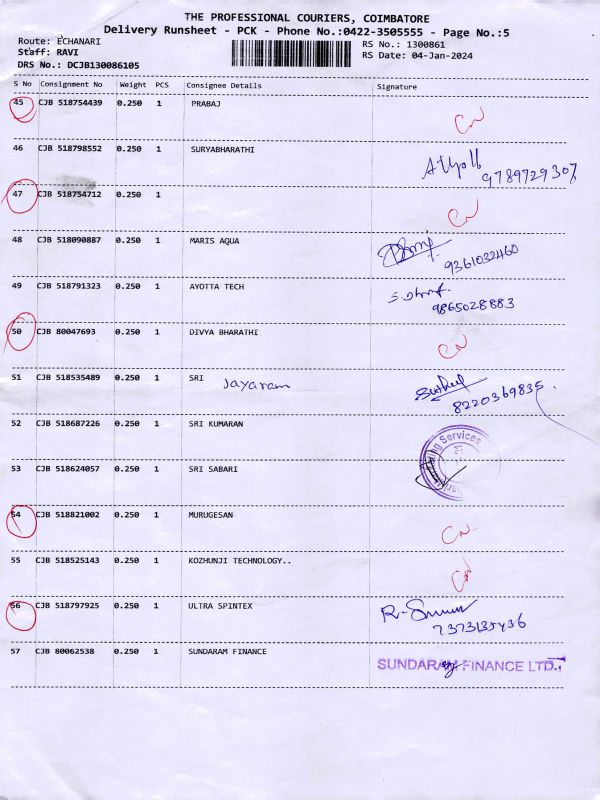 THE PROFESSIONAL COURIERS, COIMBATORE
Delivery Runsheet - PCK - Phone No.:0422-3505555 - Page No.:5
Route: ECHANARI
RS No.: 1300861
Staff: RAVI
RS Date: 04-Jan-2024
DRS No.: DCJB130086105
S No Consignment No Weight PCS Consignee Details Signature
45 CJB 518754439 0.250 1 PRABAJ
46 CJB 518798552 0.250 1 SURYABHARATHI
9789729307
47 CJB 518754712 0.250 1
48 CJB 518090887 0.250 1 MARIS AQUA
9361032460
49 CJB 518791323 0.250 1 AYOTTA TECH
9865028883
50 CJB 80047693 0.250 1 DIVYA BHARATHI
51 CJB 518535489 0.250 1 SRI Jayaram
8220369835
52 CJB 518687226 0.250 1 SRI KUMARAN
Services
53 CJB 518624057 0.250 1 SRI SABARI
54 CJB 518821002 0.250 1 MURUGESAN
55 CJB 518525143 0.250 1 KOZHUNJI TECHNOLOGY..
56 CJB 518797925 0.250 1 ULTRA SPINTEX
7373135436
57 CJB 80062538 0.250 1 SUNDARAM FINANCE
SUNDARAM FINANCE LTD.,